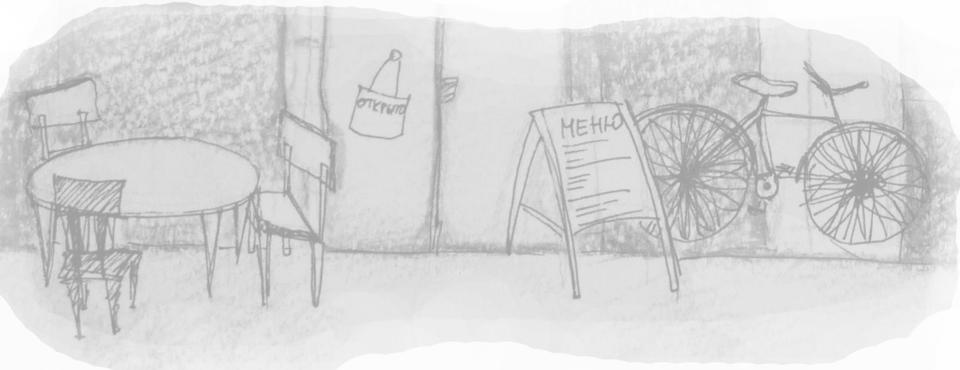 ОТКРЫТО
МЕНЮ